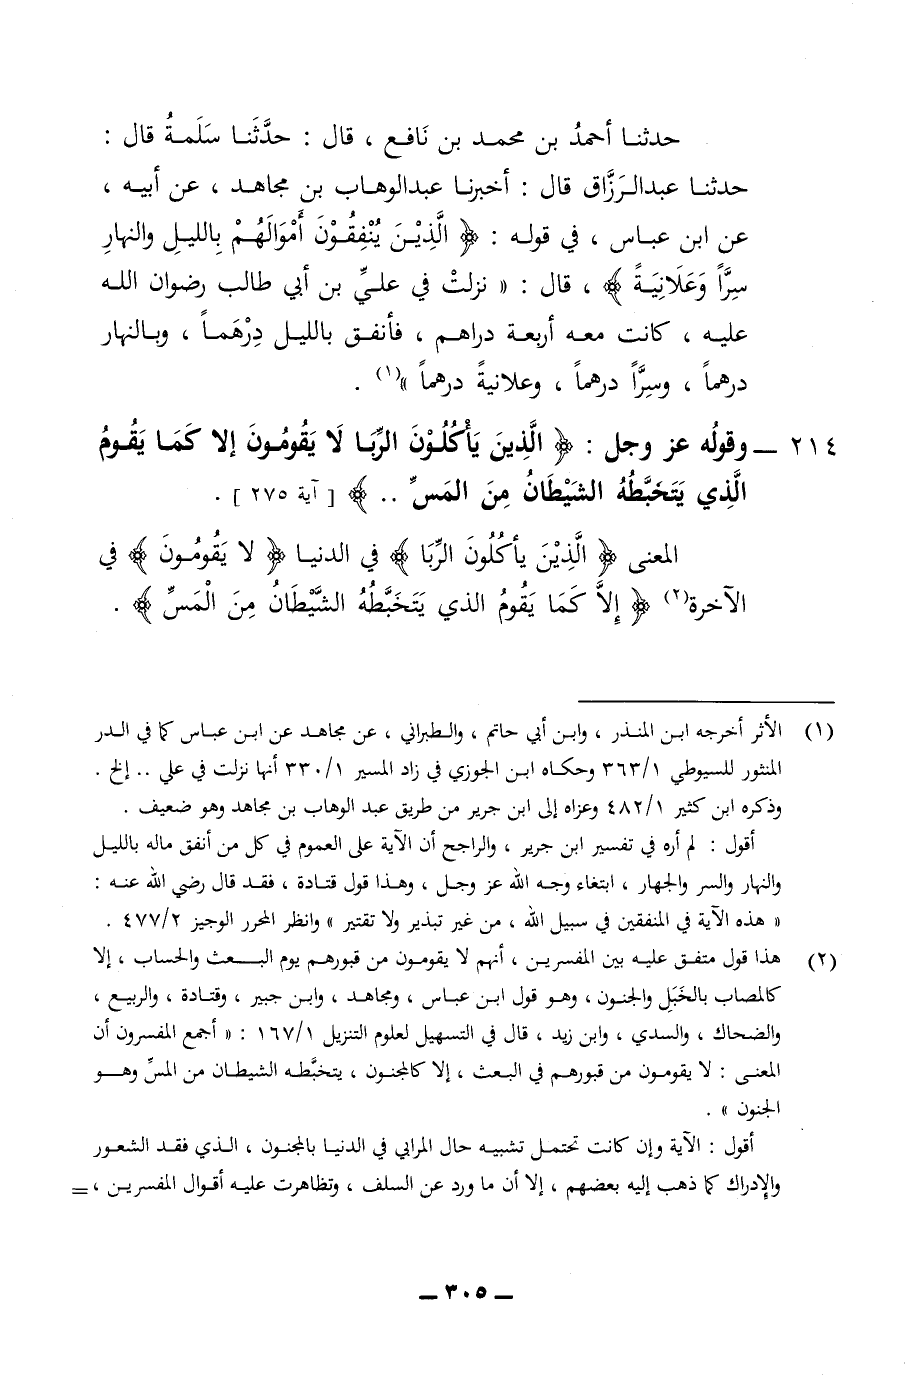 حدثنا أحمدُ بن محمد بن نَافع ، قال : حدَّثَنا سَلَمةُ قال :
حدثنا عبدالرَزَّاق قال : أخبرنا عبدالوهاب بن مجاهد ، عن أبيه ،
عن ابن عباس ، في قوله : ﴿ الَّذِيْنَ يُنْفِقُوْنَ أَمْوَالَهُمْ بِالليلِ والنهارِ
سِرَّاً وَعَلَانِيَةً ﴾ ، قال : « نزلتْ في عليِّ بن أبي طالب رضوان الله
عليه ، كانت معه أربعة دراهم ، فأنفق بالليل دِرْهَماً ، وبالنهار
درهماً ، وسِرَّاً درهماً ، وعلانيةً درهماً »(١) .
٢١٤ ـ وقولُه عز وجل : ﴿ الَّذِينَ يَأْكُلُوْنَ الرِّبَا لَا يَقُومُونَ إلا كَمَا يَقُومُ
الَّذِي يَتَخَبَّطُهُ الشَيْطَانُ مِنَ المَسِّ .. ﴾ [ آية ٢٧٥ ] .
المعنى ﴿ الَّذِيْنَ يأكُلُونَ الرِّبَا ﴾ في الدنيا ﴿ لا يَقُومُونَ ﴾ في
الآخرة(٢) ﴿ إِلاَّ كَمَا يَقُومُ الذي يَتَخَبَّطُهُ الشَّيْطَانُ مِنَ الْمَسِّ ﴾ .
(١) الأثر أخرجه ابن المنذر ، وابن أبي حاتم ، والطبراني ، عن مجاهد عن ابن عباس كما في الدر
المنثور للسيوطي ٣٦٣/١ وحكاه ابن الجوزي في زاد المسير ٣٣٠/١ أنها نزلت في علي .. إلخ .
وذكره ابن كثير ٤٨٢/١ وعزاه إلى ابن جرير من طريق عبد الوهاب بن مجاهد وهو ضعيف .
أقول : لم أره في تفسير ابن جرير ، والراجح أن الآية على العموم في كل من أنفق ماله بالليل
والنهار والسر والجهار ، ابتغاء وجه الله عز وجل ، وهذا قول قتادة ، فقد قال رضي الله عنه :
« هذه الآية في المنفقين في سبيل الله ، من غير تبذير ولا تقتير » وانظر المحرر الوجيز ٤٧٧/٢ .
(٢) هذا قول متفق عليه بين المفسرين ، أنهم لا يقومون من قبورهم يوم البعث والحساب ، إلا
كالمصاب بالخَبَلِ والجنون ، وهو قول ابن عباس ، ومجاهد ، وابن جبير ، وقتادة ، والربيع ،
والضحاك ، والسدي ، وابن زيد ، قال في التسهيل لعلوم التنزيل ١٦٧/١ : « أجمع المفسرون أن
المعنى : لا يقومون من قبورهم في البعث ، إلا كالمجنون ، يتخبَّطه الشيطان من المسِّ وهو
الجنون » .
أقول : الآية وإن كانت تحتمل تشبيه حال المرابي في الدنيا بالمجنون ، الذي فقد الشعور
والإدراك كما ذهب إليه بعضهم ، إلا أن ما ورد عن السلف ، وتظاهرت عليه أقوال المفسرين ، =
ـ ٣٠٥ ـ